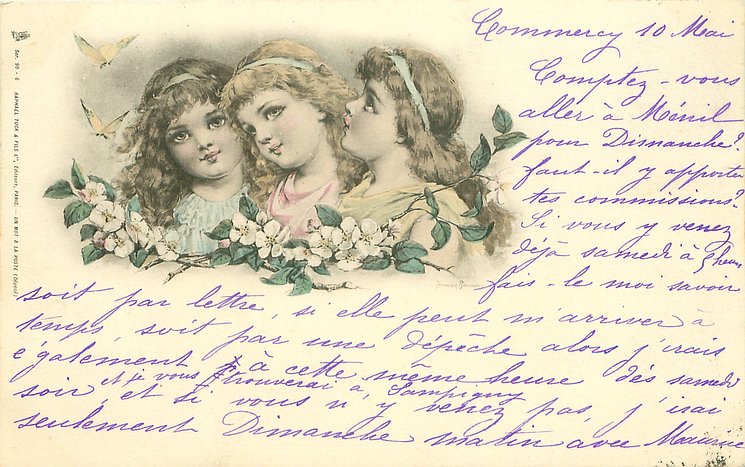 Commercy 10 Mai
Comptez-vous
aller à Ménil
pour Dimanche?
faut-il y apporter
tes commissions?
Si vous y venez
déjà samedi à 5 heures
fais-le moi savoir
soit par lettre, si elle peut m'arriver à
temps, soit par une dépêche alors j'irais
également à cette même heure dès samedi
et je vous trouverai à Sampigny
soir, et si vous n'y venez pas, j'irai
seulement Dimanche matin avec Maurice
Ser. 90 - 6
RAPHAEL TUCK & FILS Cie, Editeurs, PARIS. — ON MOT A LA POSTE (Déposé)